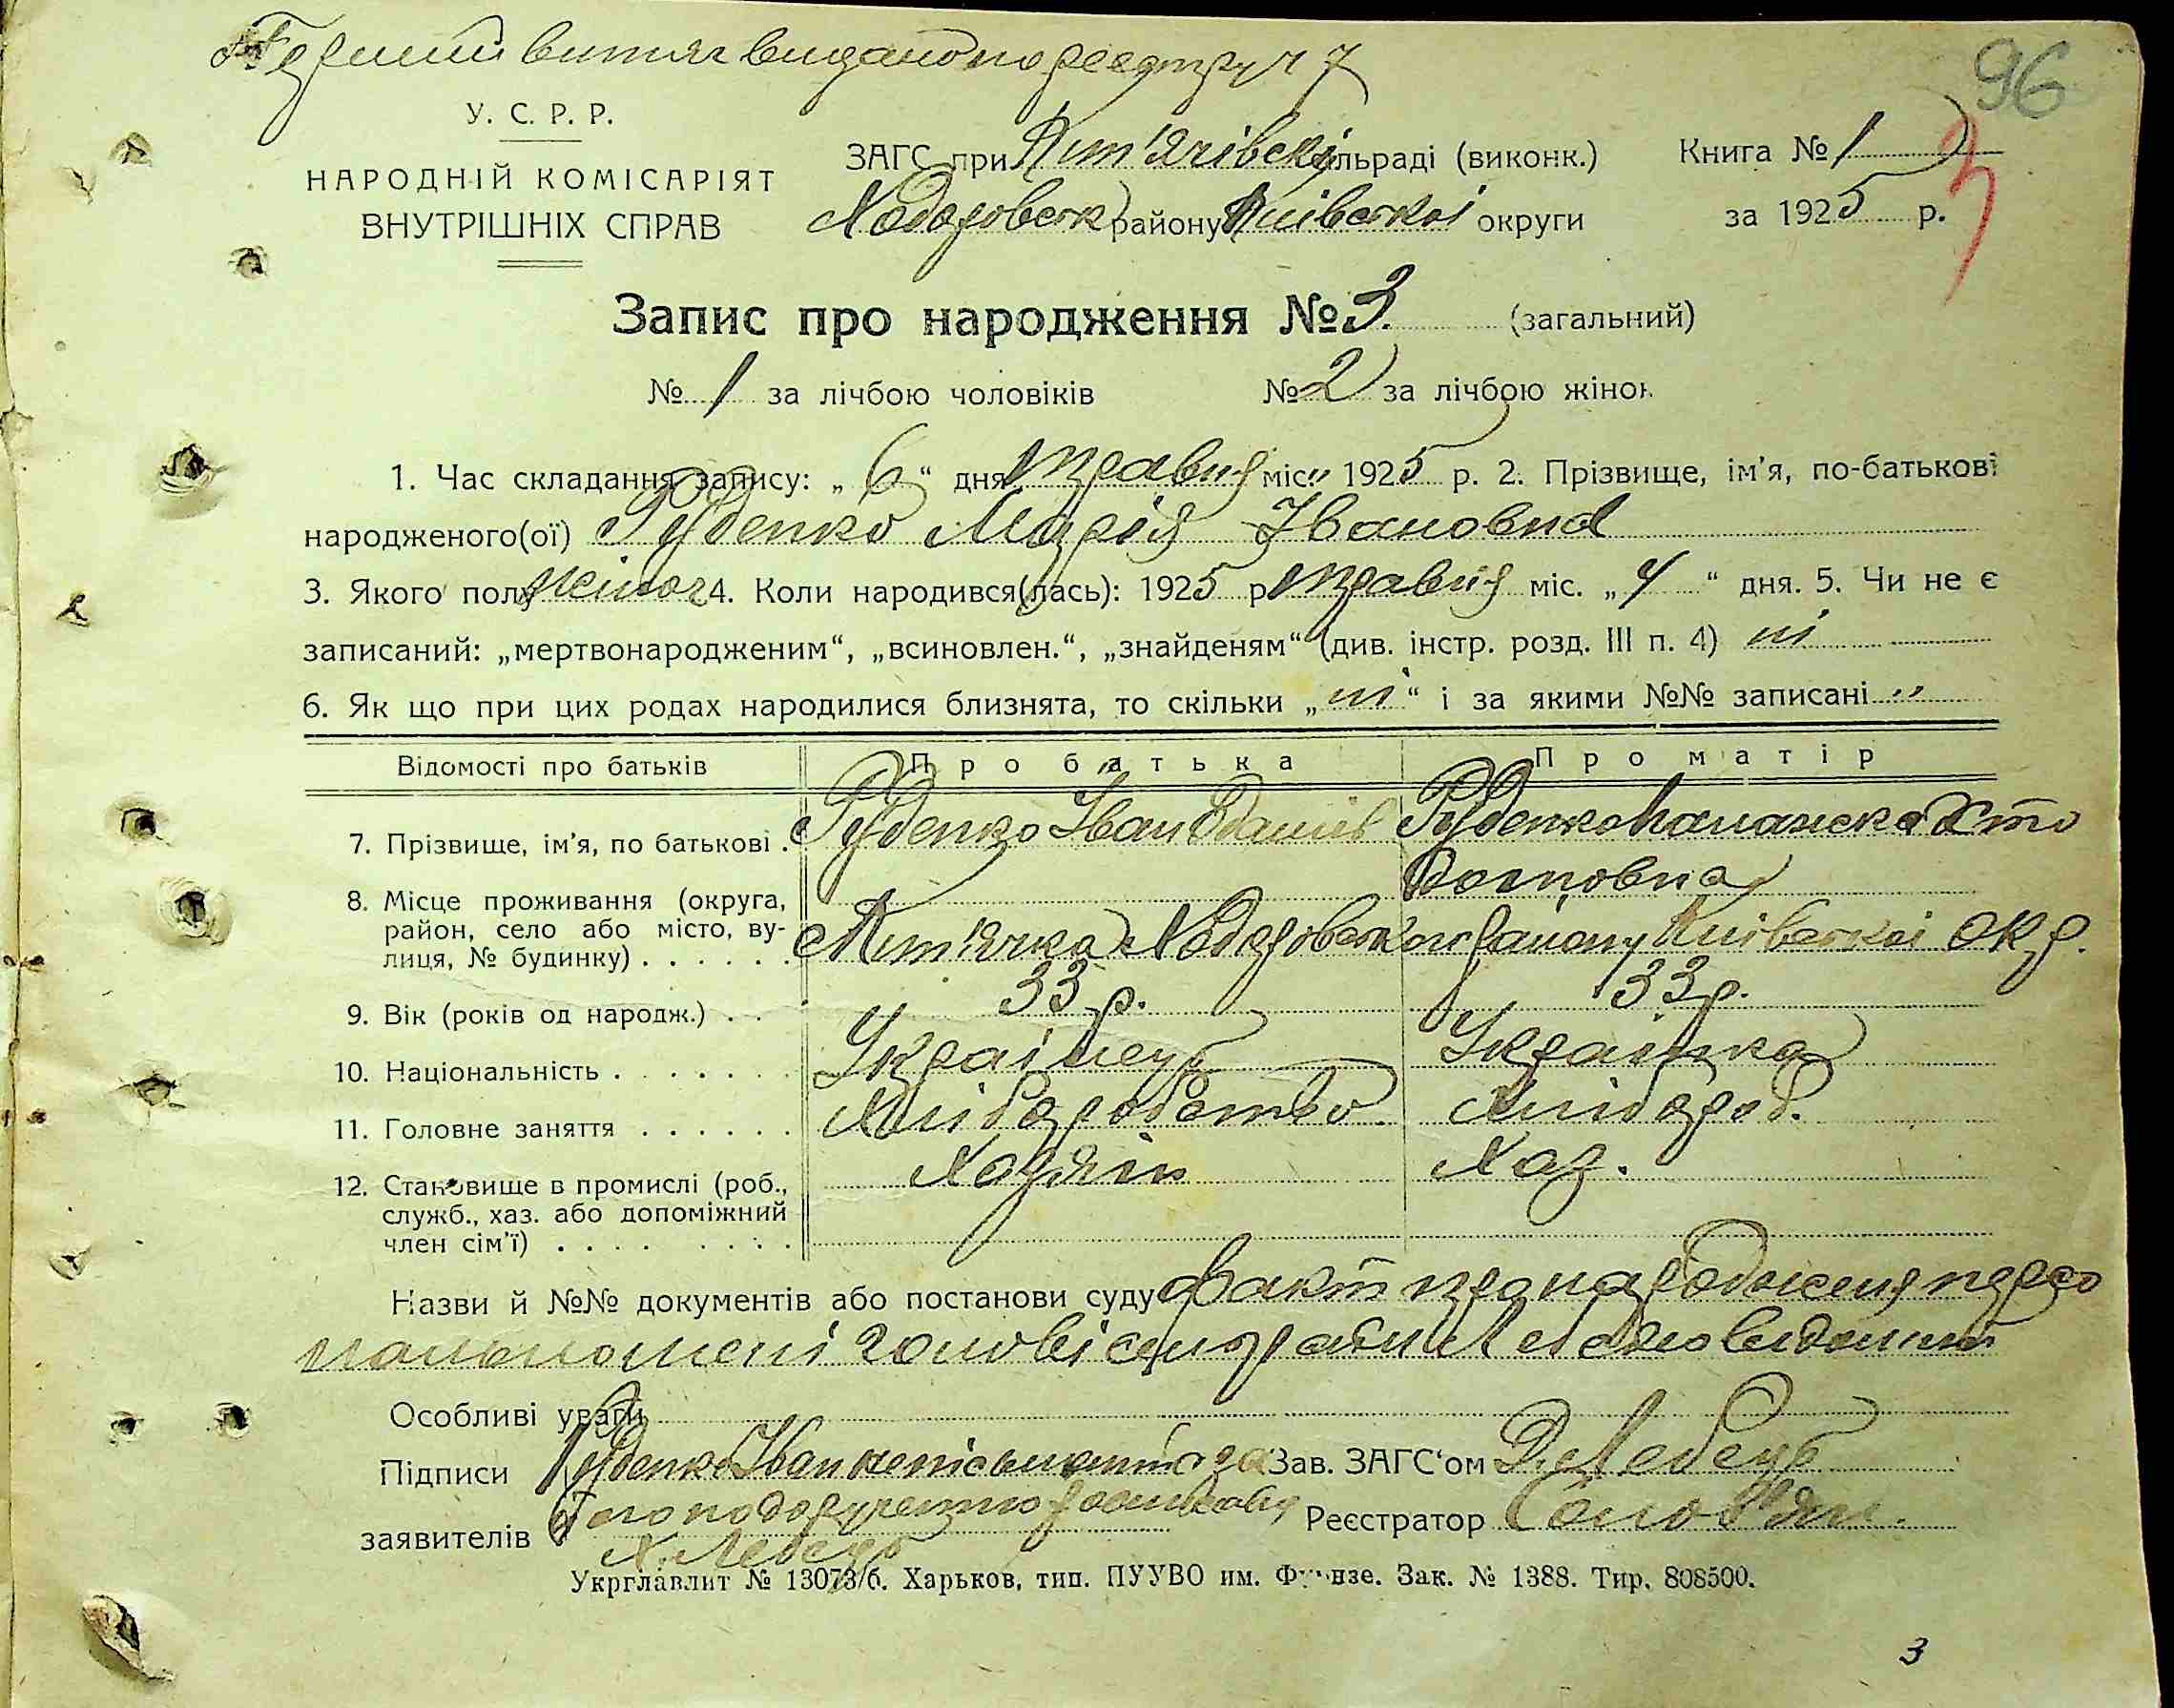 витяг видано по реєстру ч 7
96
У. С. Р. Р.
НАРОДНІЙ КОМІСАРІЯТ
ВНУТРІШНІХ СПРАВ
ЗАГС при Пит'ячівскі сільраді (виконк.)
Ходоровськ району Київської округи
Книга № 1
за 1925 р.
3
Запис про народження № 3. (загальний)
№ 1 за лічбою чоловіків № 2 за лічбою жінок
1. Час складання запису: „ 6 “ дня травня міс. 1925 р. 2. Прізвище, ім'я, по-батькові
народженого(ої) Руденко Марія Івановна
3. Якого пола жіноч 4. Коли народився(лась): 1925 р травня міс. „ 4 “ дня. 5. Чи не є
записаний: „мертвонародженим“, „всиновлен.“, „знайденям“ (див. інстр. розд. III п. 4) ні
6. Як що при цих родах народилися близнята, то скільки „ ні “ і за якими №№ записані "
Відомості про батьків Про батька Про матір
7. Прізвище, ім'я, по батькові . Руденко Іван Руденко
8. Місце проживання (округа,
район, село або місто, ву-
лиця, № будинку) . . . . . . Ходоровського району Київської окр.
9. Вік (років од народж.) . . 33 р. 33 р.
10. Національність . . . . . . . Українець Українка
11. Головне заняття . . . . . . Хліборобство Хлібороб.
12. Становище в промислі (роб., Хазяїн Хаз.
служб., хаз. або допоміжний
член сім'ї) . . . . . . . .
Назви й №№ документів або постанови суду факт про народження персо
нально голові сільради
Особливі уваги
Підписи Руденко Іван неписьменний а за Зав. ЗАГС'ом Д. Лебедь
заявителів його по доручению росписався Реєстратор
Х. Лебедь
Укрглавлит № 13073/б. Харьков, тип. ПУУВО им. Фрунзе. Зак. № 1388. Тир. 808500.
3